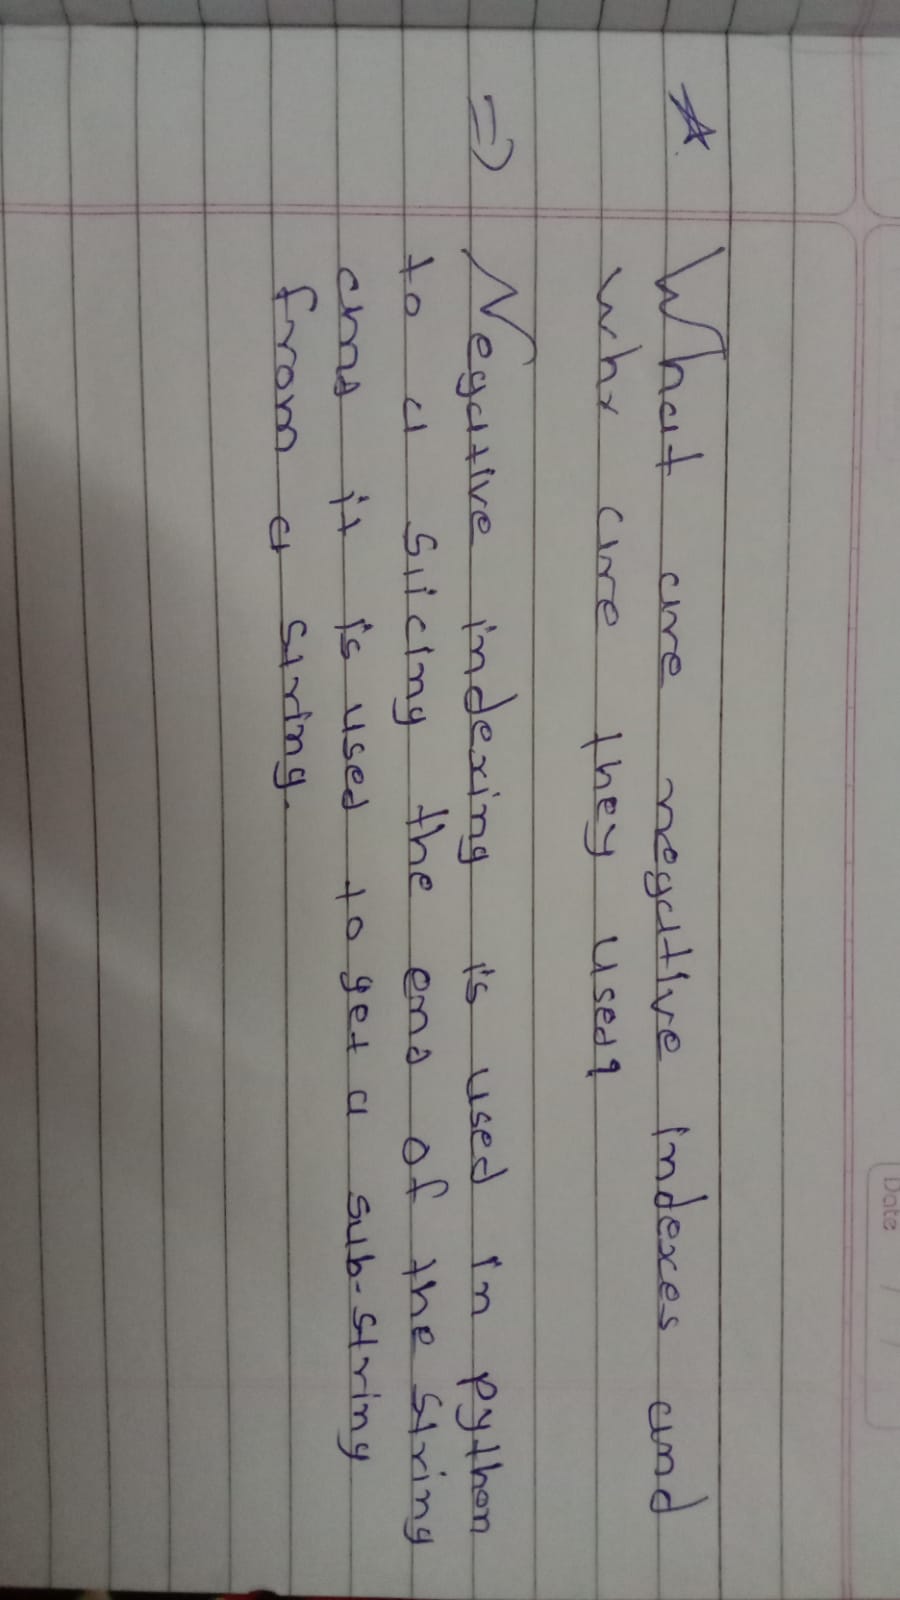 Date
☆ What are negative indexes and
why are they used?
=> Negative indexing is used in python
to a slicing the end of the string
and it is used to get a sub-string
from a string.